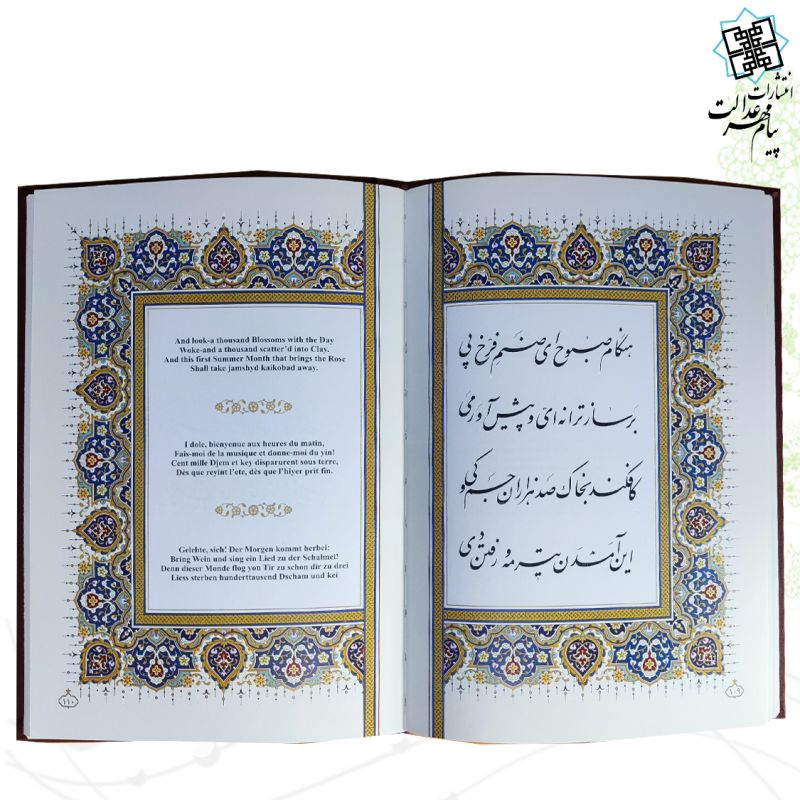 انتشارات
پیام مهر عدالت
هنگام صبوح ای صنم فرخ پی
برساز ترانه‌ای و پیش آور می
کافکند بخاک صد هزاران جم و کی
این آمدن تیر مه و رفتن دی
۱۰۹
And look-a thousand Blossoms with the Day
Woke-and a thousand scatter'd into Clay.
And this first Summer Month that brings the Rose
Shall take jamshyd kaikobad away.
I dole, bienyenue aux heures du matin,
Fais-moi de la musique et donne-moi du yin!
Cent mille Djem et key disparurent sous terre,
Dès que reyint l'ete, dès que l'hiyer prit fin.
Gelebte, sieh! Der Morgen kommt herbei:
Bring Wein und sing ein Lied zu der Schalmei!
Denn dieser Monde flog yon Tir zu schon dir zu drei
Liess sterben hunderttausend Dscham und kei
۱۱۰